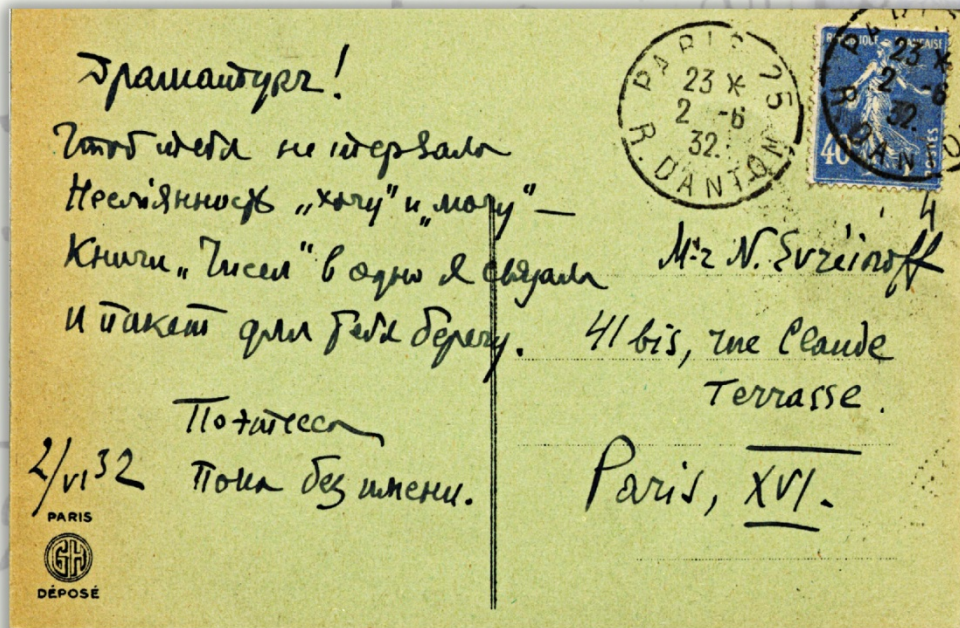 Драматургъ!
Чтоб тебя не терзала
Неслiянность „хочу" и „могу" —
Книги „Чисел" в одно я связала
И пакет для тебя берегу.
Поэтесса
пока без имени.
2/VI 32
PARIS
GH
DÉPOSÉ
PARIS 75
23 *
2 -6
32.
R. DANTON
REPUBLIQUE FRANÇAISE
40
POSTES
23 *
2 -6
32.
R. DANTON
4
Mr N. Evréinoff
41 bis, rue Claude
Terrasse.
Paris, XVI.